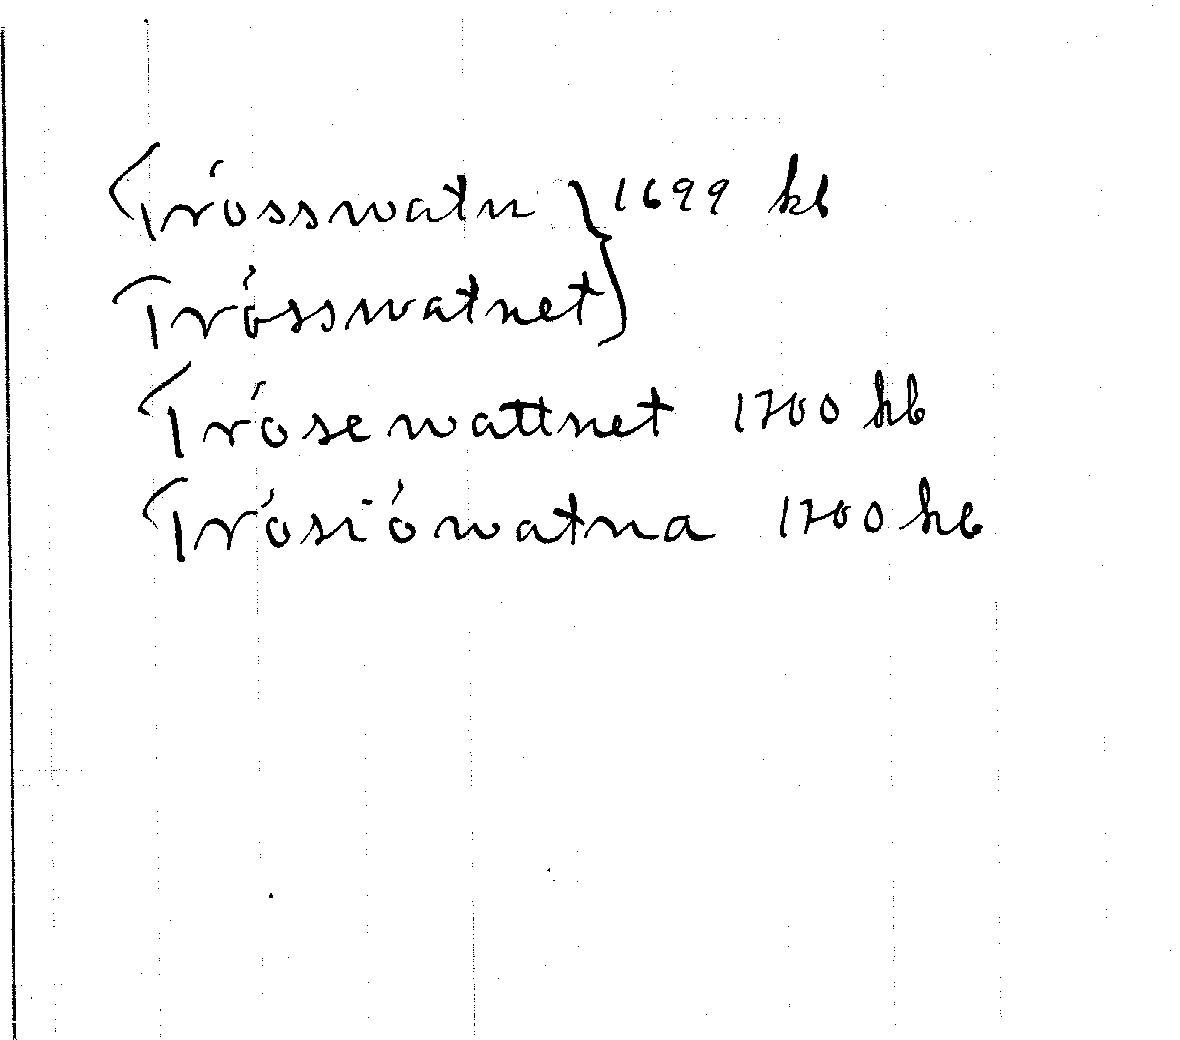 Trósswatn } 1699 kb
Trósswatnet
Trósewattnet 1700 kb
Trósiówatna 1700 kb